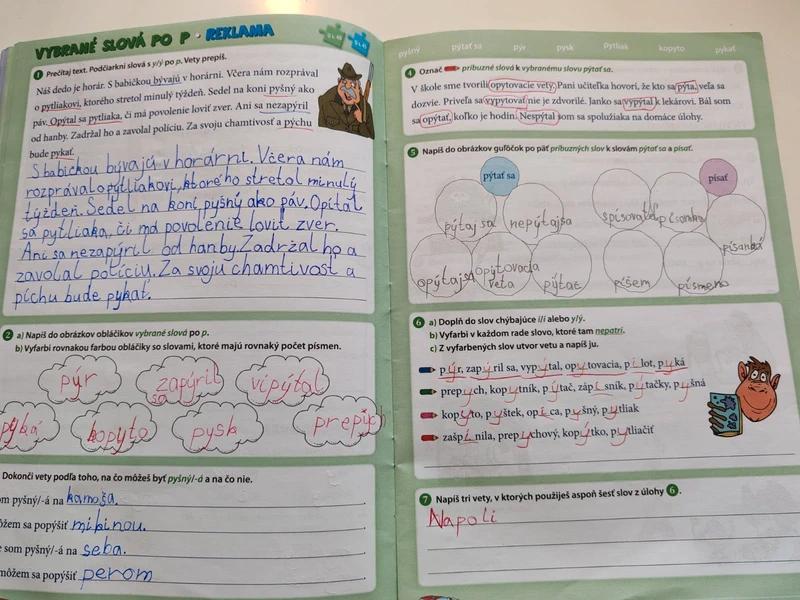 VYBRANÉ SLOVÁ PO P • REKLAMA
1 Prečítaj text. Podčiarkni slová s y/ý po p. Vety prepíš.
Náš dedo je horár. S babičkou bývajú v horárni. Včera nám rozprával
o pytliakovi, ktorého stretol minulý týždeň. Sedel na koni pyšný ako
páv. Opýtal sa pytliaka, či má povolenie loviť zver. Ani sa nezapýril
od hanby. Zadržal ho a zavolal políciu. Za svoju chamtivosť a pýchu
bude pykať.
S babičkou bývajú v horárni. Včera nám
rozprával o pytliakovi, ktorého stretol minulý
týždeň. Sedel na koni pyšný ako páv. Opítal
sa pytliaka, či má povolenie lovit zver.
Ani sa nezapýril od hanby. Zadržal ho a
zavolal políciu. Za svoju chamtivosť a
píchu bude pykať.
2 a) Napíš do obrázkov obláčikov vybrané slová po p.
b) Vyfarbi rovnakou farbou obláčiky so slovami, ktoré majú rovnaký počet písmen.
pýr
zapýril
sa
vipýtal
pyká
kopyto
pysk
prepich
Dokonči vety podľa toho, na čo môžeš byť pyšný/-á a na čo nie.
om pyšný/-á na kamoša.
ôžem sa popýšiť mikinou.
e som pyšný/-á na seba.
môžem sa popýšiť perom
pyšný pýtať sa pýr pysk pytliak kopyto pykať
4 Označ príbuzné slová k vybranému slovu pýtať sa.
V škole sme tvorili opytovacie vety. Pani učiteľka hovorí, že kto sa pýta, veľa sa
dozvie. Priveľa sa vypytovať nie je zdvorilé. Janko sa vypýtal k lekárovi. Bál som
sa opýtať, koľko je hodín. Nespýtal som sa spolužiaka na domáce úlohy.
5 Napíš do obrázkov guľôčok po päť príbuzných slov k slovám pýtať sa a písať.
pýtať sa
písať
pýtaj sa
nepýtajsa
opýtajsa
opýtovacia
veta
pýtať
písanka
píšem
písmeno
6 a) Doplň do slov chýbajúce i/í alebo y/ý.
b) Vyfarbi v každom rade slovo, ktoré tam nepatrí.
c) Z vyfarbených slov utvor vetu a napíš ju.
pýr, zapýril sa, vypýtal, opytovacia, pilot, pyká
prepych, kopytník, pýtač, zápisník, pýtačky, pyšná
kopyto, pyštek, opica, pyšný, pytliak
zašpinila, prepychový, kopýtko, pytliačiť
7 Napíš tri vety, v ktorých použiješ aspoň šesť slov z úlohy 6.
Napoli